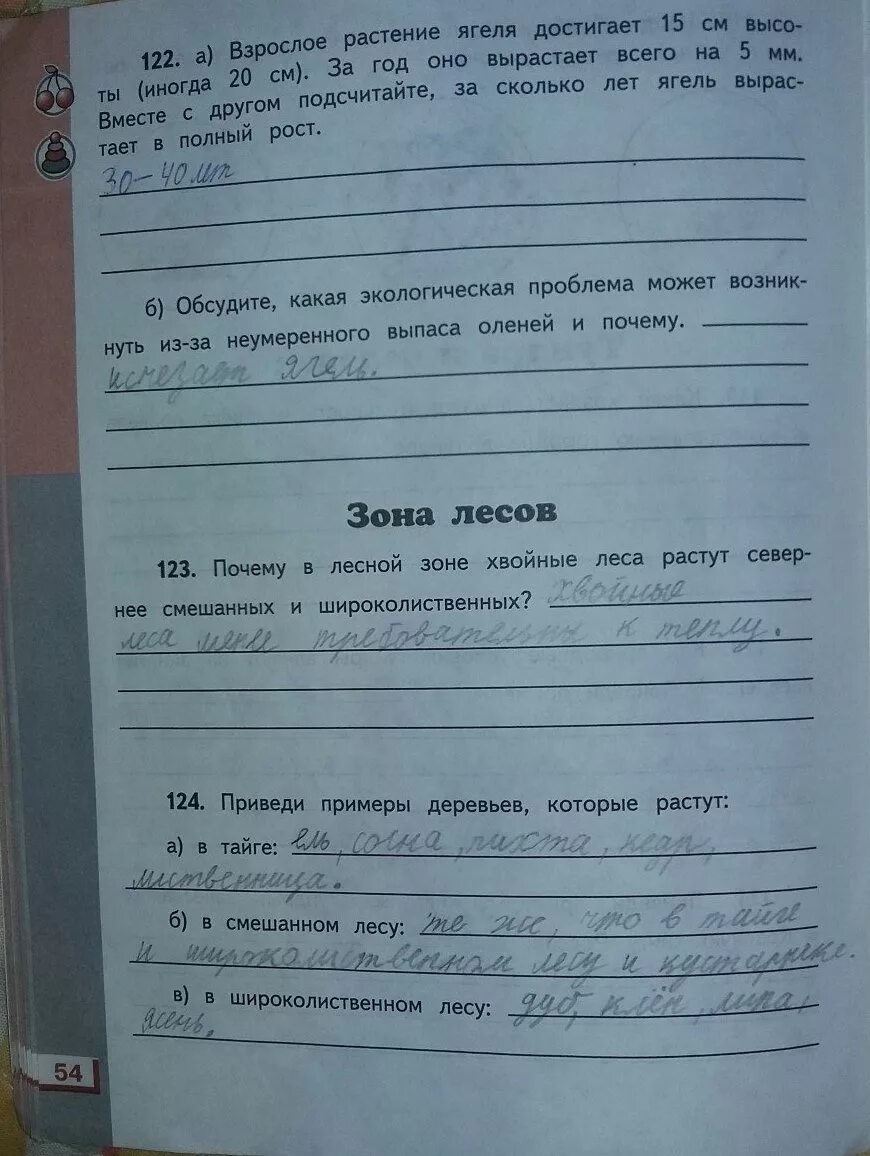 122. а) Взрослое растение ягеля достигает 15 см высо-
ты (иногда 20 см). За год оно вырастает всего на 5 мм.
Вместе с другом подсчитайте, за сколько лет ягель вырас-
тает в полный рост.
30–40 лет
б) Обсудите, какая экологическая проблема может возник-
нуть из-за неумеренного выпаса оленей и почему.
исчезает ягель.
Зона лесов
123. Почему в лесной зоне хвойные леса растут север-
нее смешанных и широколиственных? хвойные
леса мене требовательны к теплу.
124. Приведи примеры деревьев, которые растут:
а) в тайге: ель, сосна, пихта, кедр,
лиственница.
б) в смешанном лесу: те же, что в тайге
и широколиственном лесу и кустарнике.
в) в широколиственном лесу: дуб, клён, липа,
ясень.
54